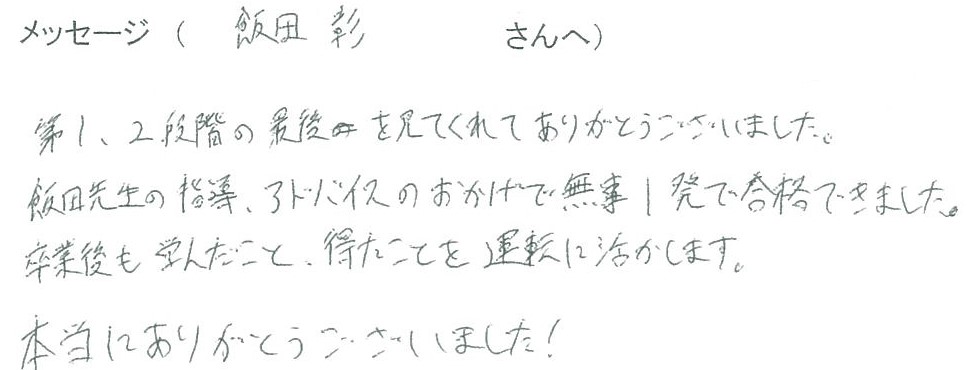 メッセージ ( 飯田 彰 さんへ)
第1、2段階の最後を見てくれてありがとうございました。
飯田先生の指導、アドバイスのおかげで無事1発で合格できました。
卒業後も学んだこと、得たことを運転に活かします。
本当にありがとうございました!